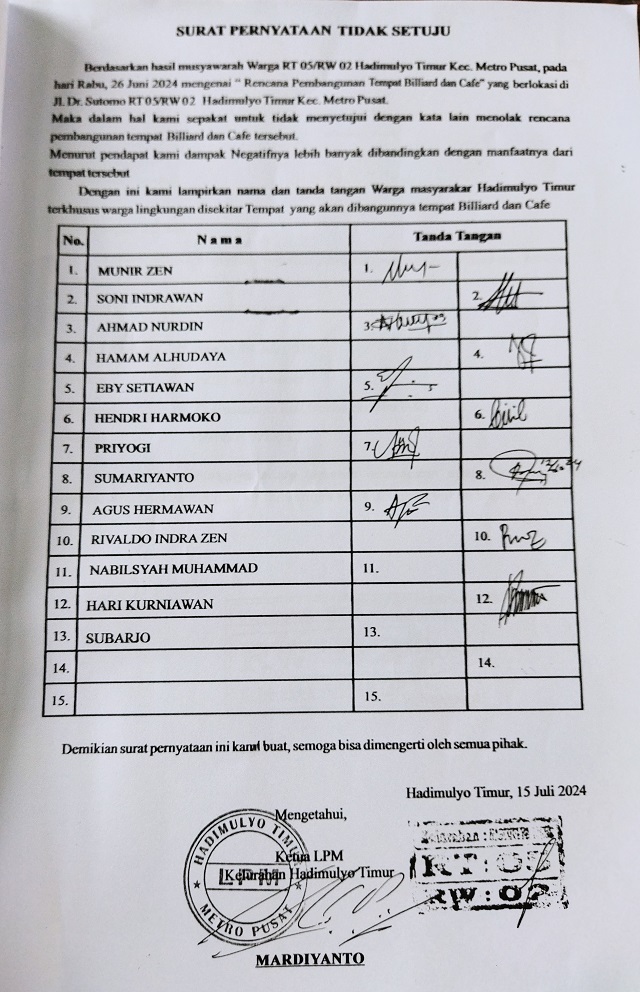 SURAT PERNYATAAN TIDAK SETUJU
Berdasarkan hasil musyawarah Warga RT 05/RW 02 Hadimulyo Timur Kec. Metro Pusat, pada
hari Rabu, 26 Juni 2024 mengenai " Rencana Pembangunan Tempat Billiard dan Cafe" yang berlokasi di
Jl. Dr. Sutomo RT 05/RW 02 Hadimulyo Timur Kec. Metro Pusat.
Maka dalam hal kami sepakat untuk tidak menyetujui dengan kata lain menolak rencana
pembangunan tempat Billiard dan Cafe tersebut.
Menurut pendapat kami dampak Negatifnya lebih banyak dibandingkan dengan manfaatnya dari
tempat tersebut
Dengan ini kami lampirkan nama dan tanda tangan Warga masyarakar Hadimulyo Timur
terkhusus warga lingkungan disekitar Tempat yang akan dibangunnya tempat Billiard dan Cafe
No. Nama Tanda Tangan
1. MUNIR ZEN 1.
2. SONI INDRAWAN 2.
3. AHMAD NURDIN 3.
4. HAMAM ALHUDAYA 4.
5. EBY SETIAWAN 5.
6. HENDRI HARMOKO 6.
7. PRIYOGI 7.
8. SUMARIYANTO 8.
9. AGUS HERMAWAN 9.
10. RIVALDO INDRA ZEN 10.
11. NABILSYAH MUHAMMAD 11.
12. HARI KURNIAWAN 12.
13. SUBARJO 13.
14. 14.
15. 15.
Demikian surat pernyataan ini kami buat, semoga bisa dimengerti oleh semua pihak.
Hadimulyo Timur, 15 Juli 2024
Mengetahui,
Ketua LPM
Kelurahan Hadimulyo Timur
HADIMULYO TIMUR
LPM
METRO PUSAT
RT: 05
RW: 02
MARDIYANTO